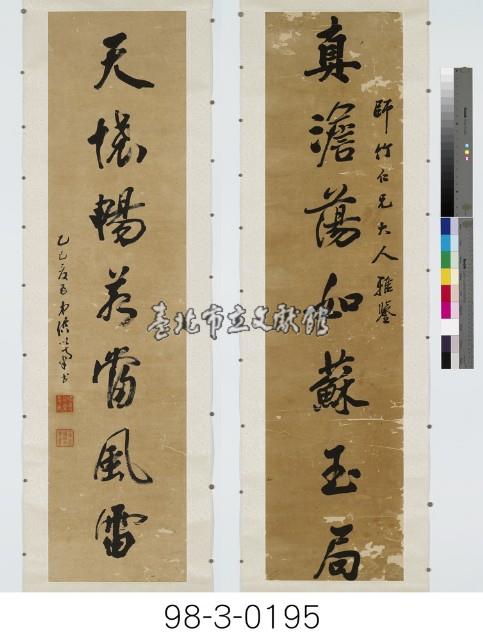 師竹仁兄大人雅鑒
真澹蕩如蘇玉局
天懷暢若當風雷
乙巳
臺北市立文獻館
98-3-0195